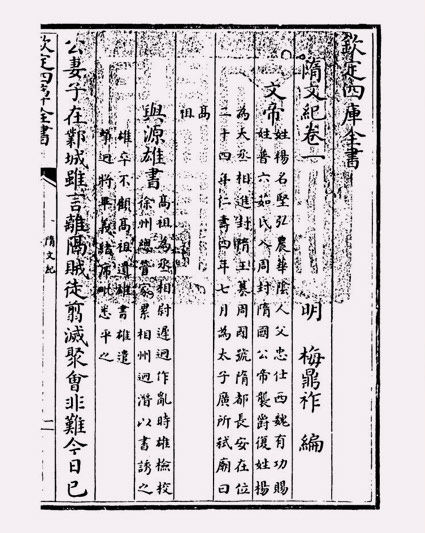 欽定四庫全書
隋文紀卷一
明 梅鼎祚 編
文帝
姓楊名堅弘農華陰人父忠仕西魏有功賜
姓普六茹氏入周封隋國公帝襲爵復姓楊
為大丞相進封隋王纂周國號隋都長安在位
二十四年仁壽四年七月為太子廣所弒廟曰
高
祖
與源雄書
高祖為丞相尉遲迥作亂時雄檢校
徐州總管家累相州迥潛以書誘之
雄卒不顧高祖遺雄書雄遣
迥將畢義緒席毗悉平之
公妻子在鄴城雖言離隔賊徒翦滅聚會非難今日已
欽定四庫全書
隋文紀